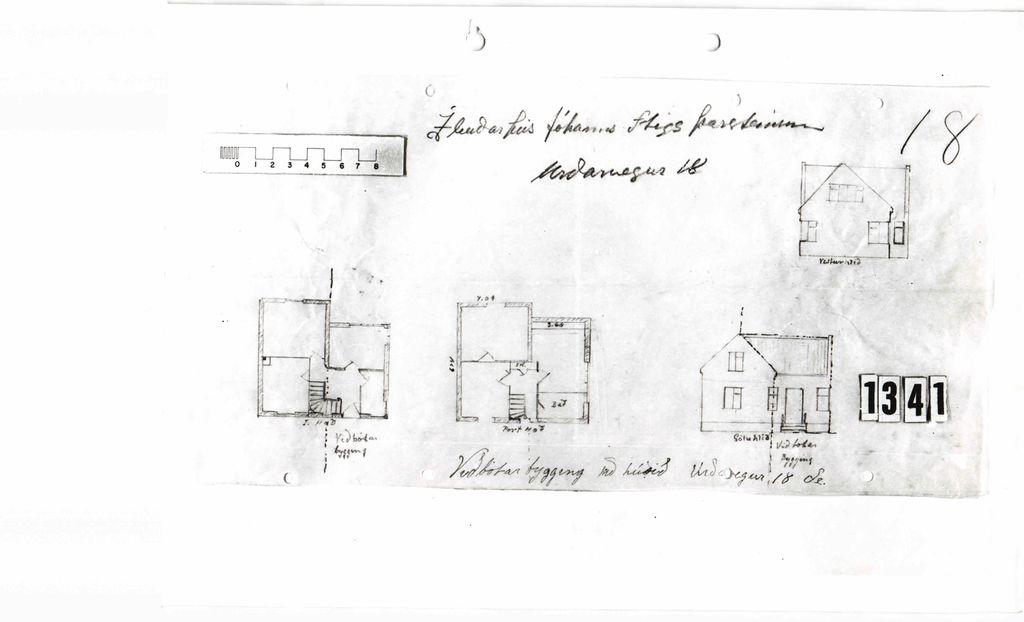 Íbúðarhús Jóhanns Stígs Þorsteinss
Urðarvegur 18
18
0 1 2 3 4 5 6 7 8
Vesturhlið
7.04
3.60
Bað
I. Hæð
Port Hæð
Viðbótar
bygging
Suðurhlið
Viðbótar
bygging
1341
Viðbótar bygging við húsið Urðavegur 18 Ve.